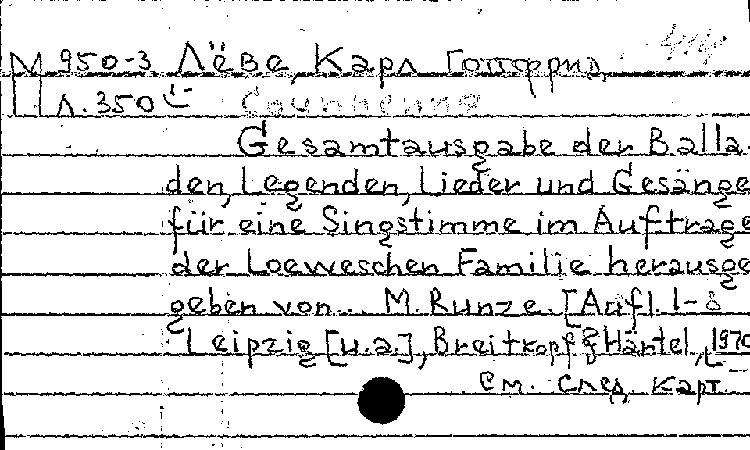 М 950-3 Лёве, Карл Готфрид
Л.350
Сочинения
Gesamtausgabe der Balla
den, Legenden, Lieder und Gesänge
für eine Singstimme im Auftrage
der Loeweschen Familie herausge
geben von... M. Runze. [Aufl. 1-8
Leipzig [u.a.], Breitkopf & Härtel, [1970
См. след. карт.